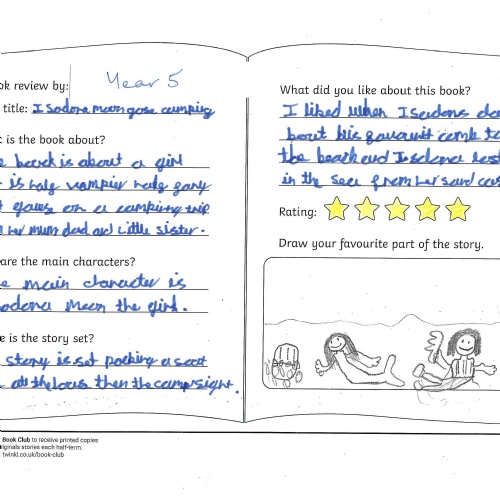 ok review by: Year 5
title: Isadora moon gose camping
t is the book about?
e book is about a girl
t is half vampier half fary
t gows on a campirng trip
her mum dad and little sister.
are the main characters?
e main character is
sadora Moon the girl.
e is the story set?
story is set packing a
at the then the campsight.
Book Club to receive printed copies
iginals stories each half-term.
twinkl.co.uk/book-club
What did you like about this book?
I liked when Isadora's da
his favourit comb to
the beach and Isadora lost
in the sea from her sand cas
Rating:
Draw your favourite part of the story.